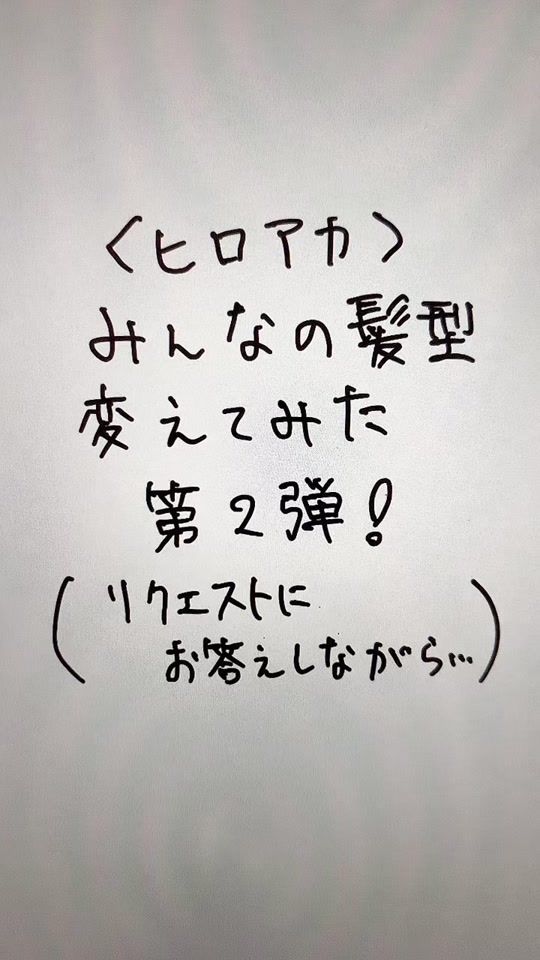 〈ヒロアカ〉
みんなの髪型
変えてみた
第2弾!
(リクエストに
お答えしながら…)